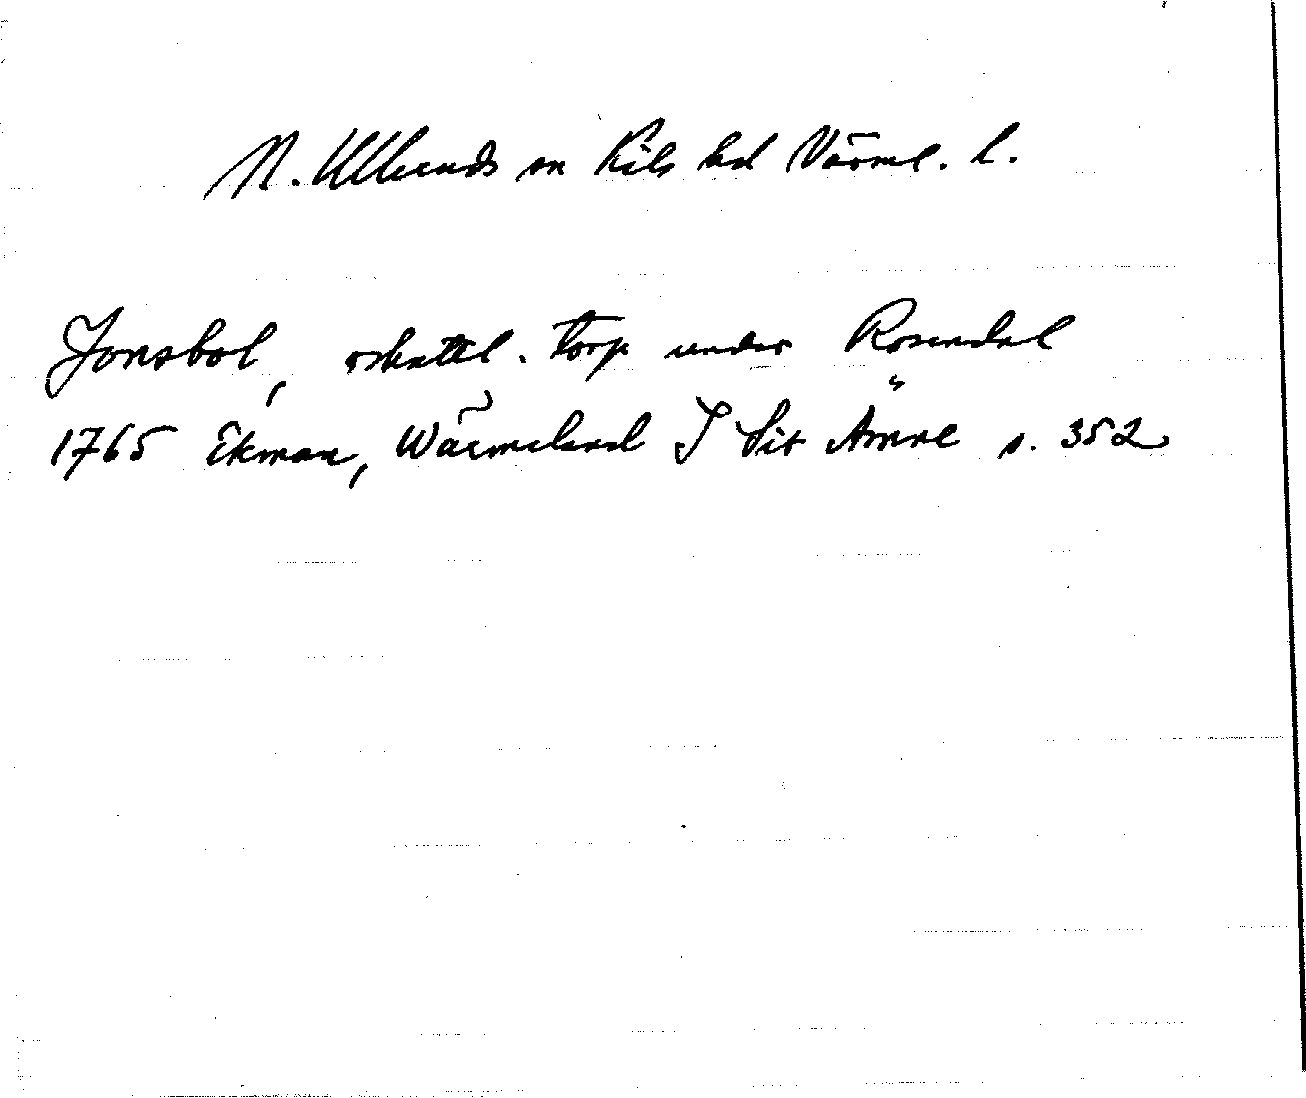 N. Ulleruds sn Kils hd Värml. l.
Jonsbol, oskattl. torp under Rosendal
1765 Ekman, Wärmeland I Sit Ämne s. 352